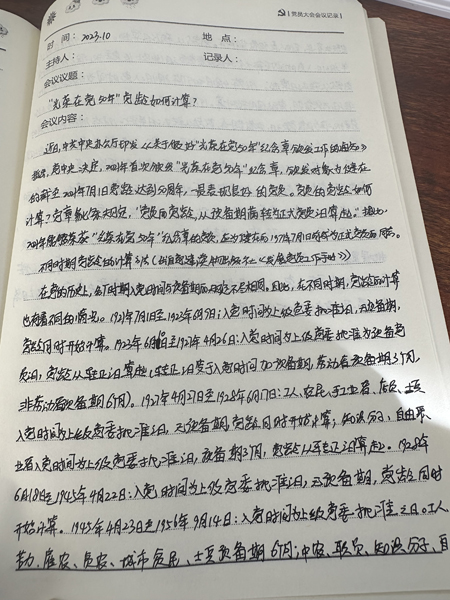 党员大会会议记录
时 间：2023.10 地 点：
主持人： 记录人：
会议议题：
"光荣在党50年"党龄如何计算？
会议内容：
近日，中共中央办公厅印发《关于做好"光荣在党50年"纪念章颁发工作的通知》
指出，党中央决定，2021年首次颁发"光荣在党50年"纪念章，颁发对象为健在
的截至2021年7月1日党龄达到50周年，一贯表现良好的党员。党员的党龄如何
计算？党章规定，"党员的党龄，从预备期满转为正式党员之日算起。"
2021年"光荣在党50年"纪念章的党员，应为健在的1971年7月1日前成为正式党员的同志。
不同时期党龄的计算方法（
在党的历史上，各个时期入党时间与预备期的规定不尽相同，因此，在不同时期，党龄的计算
也有着不同的情况。1921年7月1日至1923年6月9日：入党时间为上级党委批准之日，无预备期，
党龄同时开始计算。1923年6月10日至1927年4月26日：入党时间为上级党委批准为预备党
员之日，党龄从转正之日算起（转正之日等于入党时间加预备期，劳动者预备期3个月，
非劳动者预备期6个月）。1927年4月27日至1928年6月17日：工人、农民、手工业者、店员、士兵
入党时间为上级党委批准之日，无预备期，党龄同时开始计算；知识分子、自由职
业者入党时间为上级党委批准之日，预备期3个月，党龄从转正之日算起。1928年
6月18日至1945年4月22日：入党时间为上级党委批准之日，无预备期，党龄同时
开始计算。1945年4月23日至1956年9月14日：入党时间为上级党委批准之日。工人、
苦力、雇农、贫农、城市贫民、士兵预备期6个月；中农、职员、知识分子、自